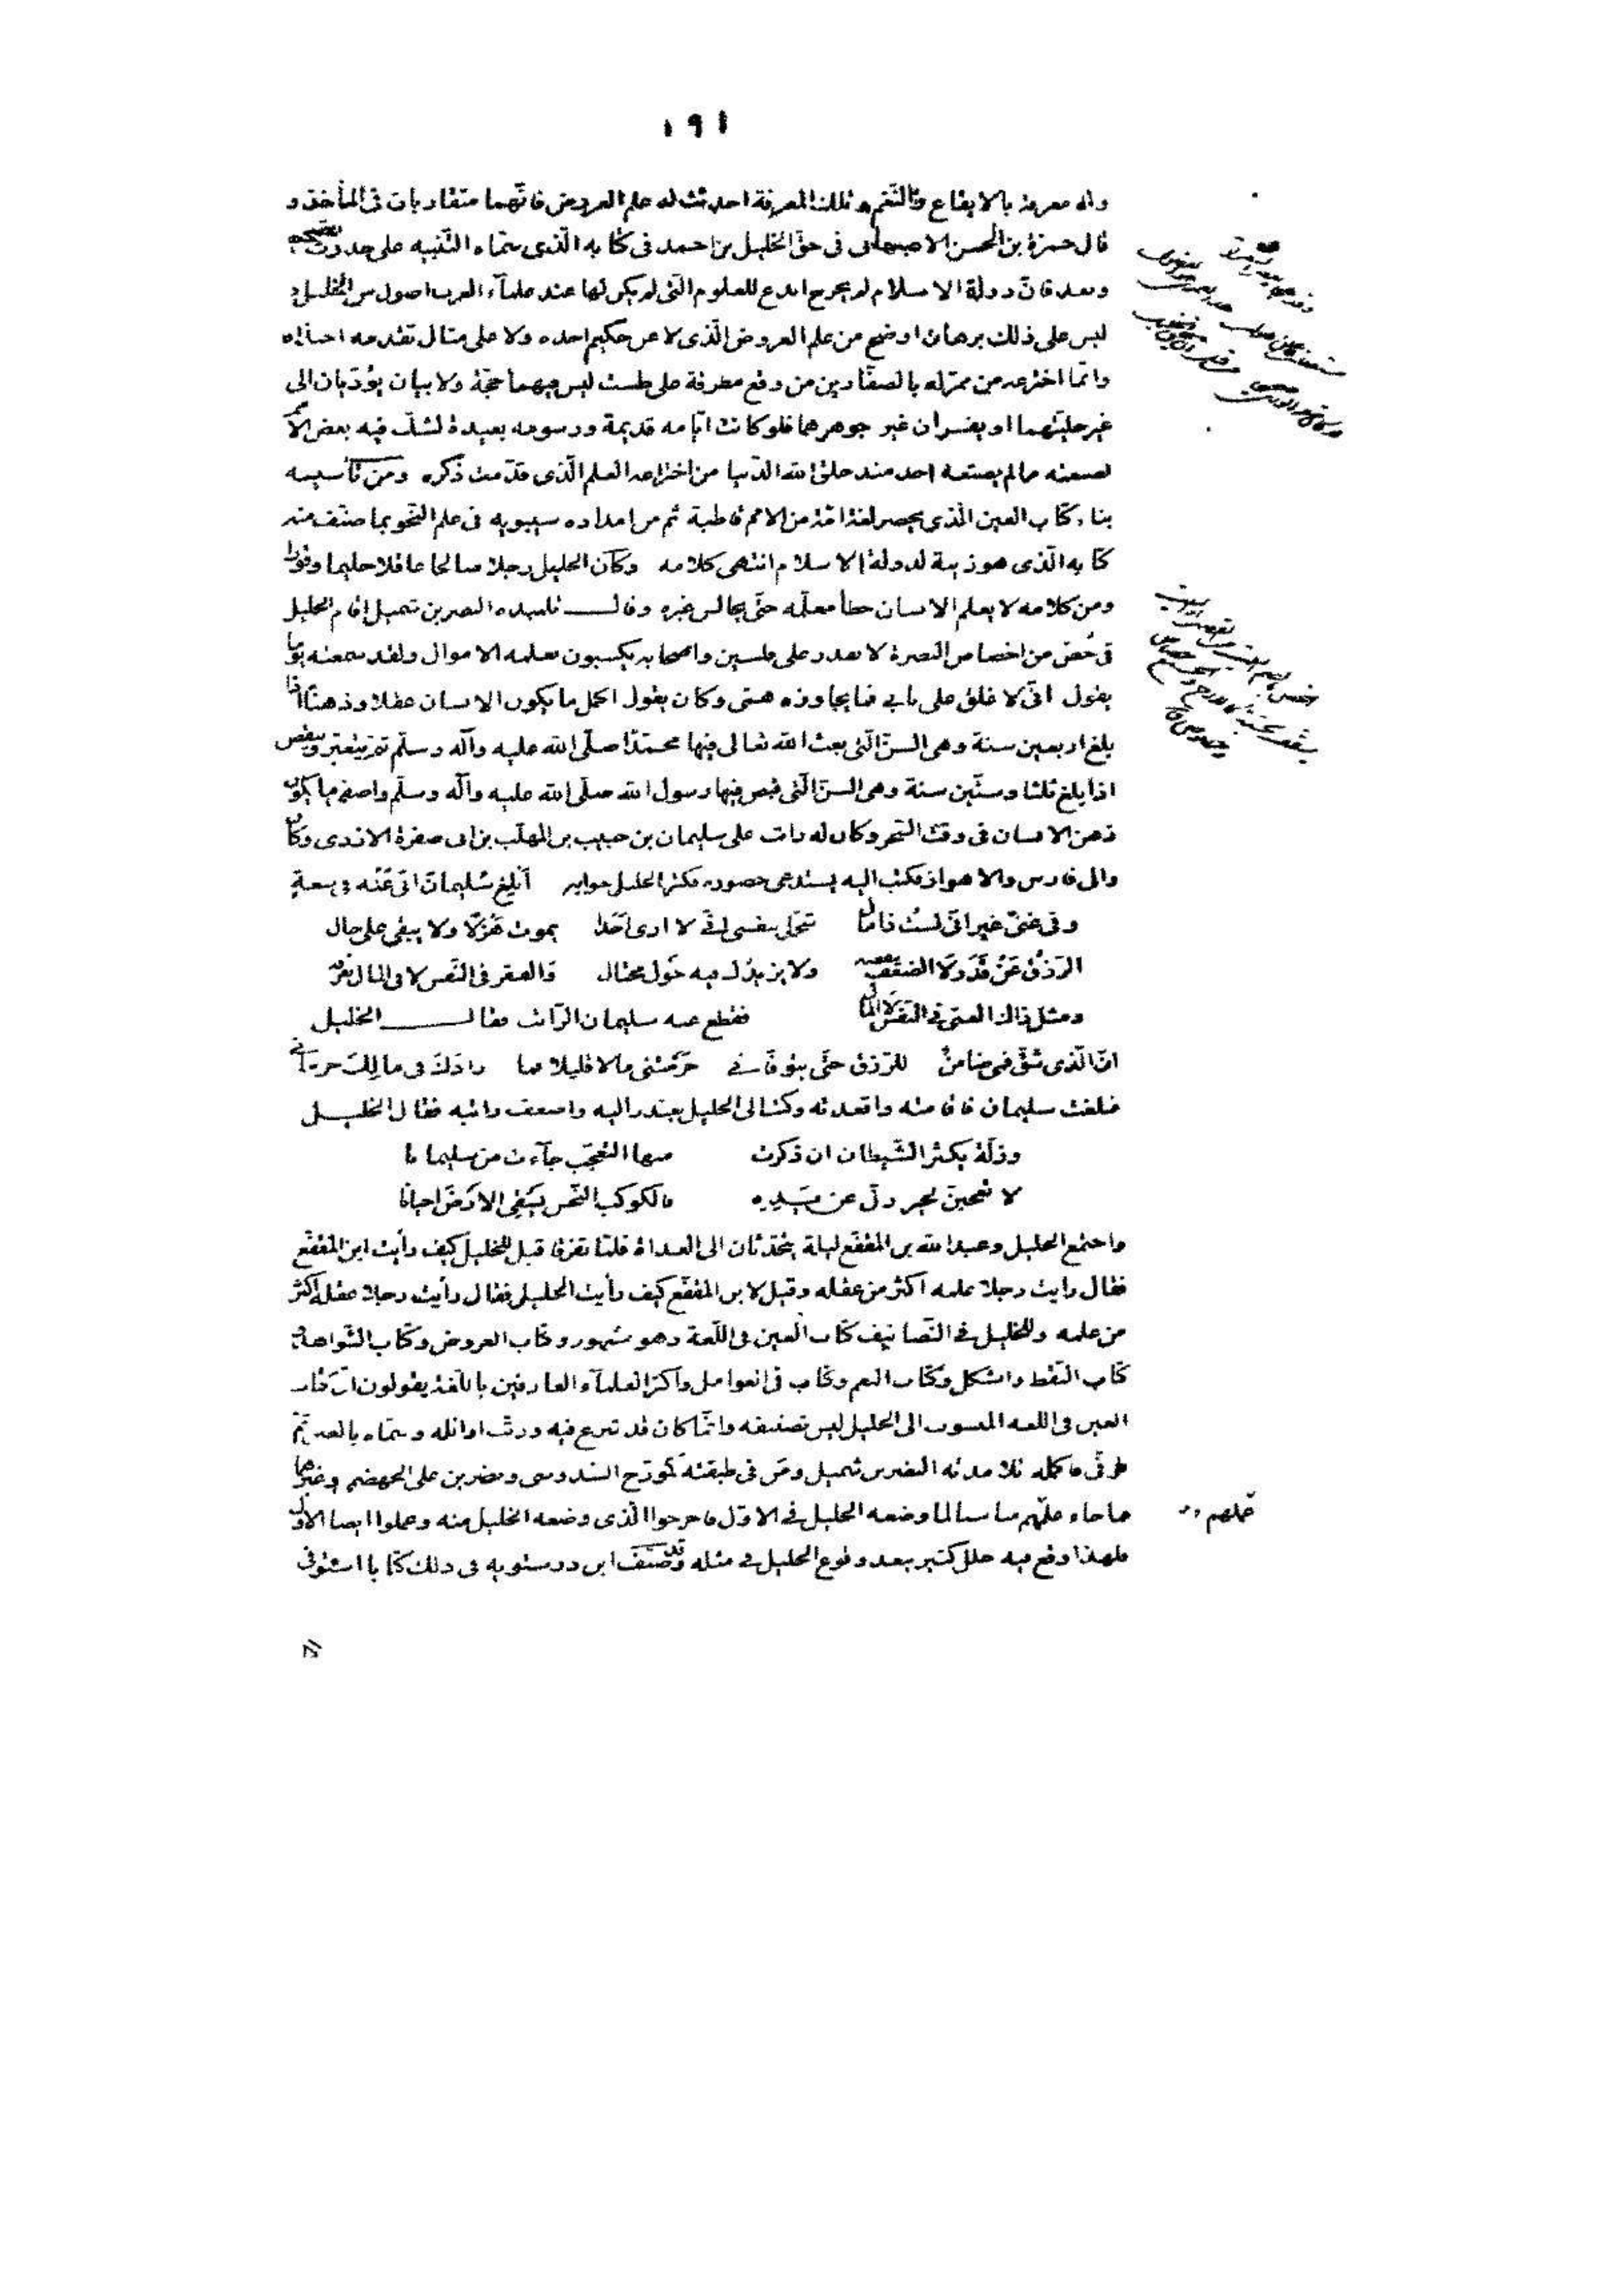 ١٩١
وله معرفة بالايقاع والنّغم و تلك المعرفة احدثت له علم العروض فانّهما متقاربان فى المأخذ و
قال حمزة بن الحسن الاصبهانى فى حقّ الخليل بن احمد فى كتابه الّذى سمّاه التّنبيه على حدوث
وبعد فانّ دولة الاسلام لم يخرج ابدع للعلوم الّتى لم يكن لها عند علمآء العرب اصول من الخليل و
ليس على ذلك برهان اوضح من علم العروض الّذى لا عن حكيم اخذه ولا على مثال تقدمه احتذاه
وانّما اخترعه من ممرّ له بالصفّارين من وقع مطرقة على طست ليس فيهما حجّة ولا بيان يؤدّيان الى
غير حليتهما او يفسران غير جوهرهما فلو كانت ايّامه قديمة ورسومه بعيدة لشكّ فيه بعض الامم
لصنعته ما لم يصنعه احد منذ خلق الله الدّنيا من اختراعه العلم الّذى قدّمت ذكره ومن تأسيسه
بناء كتاب العين الّذى يحصر لغة امّة من الامم قاطبة ثم من امداده سيبويه فى علم النّحو بما صنّف منه
كتابه الّذى هو زينة لدولة الاسلام انتهى كلامه وكان الخليل رجلا صالحا عاقلا حليما وقورا
ومن كلامه لا يعلم الانسان خطأ معلّمه حتّى يجالس غيره وقال تلميذه النضر بن شميل اقام الخليل
فى خُصّ من اخصاص البصرة لا يقدر على فلسين واصحابه يكسبون بعلمه الاموال ولقد سمعته يوما
يقول انّى لا غلق على بابى فما يجاوزه همّى وكان يقول اكمل ما يكون الانسان عقلا وذهنا اذا
بلغ اربعين سنة وهى السنّ الّتى بعث الله تعالى فيها محمّدا صلّى الله عليه وآله وسلّم ثمّ يتغيّر وينقص
اذا بلغ ثلثا وستّين سنة وهى السنّ الّتى قبض فيها رسول الله صلّى الله عليه وآله وسلّم واصفى ما يكون
ذهن الانسان فى وقت السّحر وكان له راتب على سليمان بن حبيب بن المهلّب بن ابى صفرة الازدى وكان
والى فارس والاهواز فكتب اليه يستدعى حضوره فكتب الخليل جوابه أبلغ سُليمان انّى عَنْه فى سعةٍ
وفى غنىً غير انّى لستُ ذا مال شحّى بنفسى انّى لا ارى أحَدًا يموت هَزْلًا ولا يبقى على حال
الرّزقُ عَنْ قَدَرٍ لا الضّعف ينقصه ولا يزيدك فيه حَول محتال والفقر فى النّفس لا فى المال نعرفه
ومثل ذاك الغنى فى النّفس لا المال فقطع عنه سليمان الرّاتب فقال الخليل
انّ الّذى شقّ فمى ضامنٌ للرّزق حتّى يتوفّانى حَرَمْتنى مالا قليلا فما زادَكَ فى مالِكَ حرمانى
فبلغت سليمان فاقامته واقعدته وكتب الى الخليل يعتذر اليه واضعف راتبه فقال الخليل
وزلّة يكثر الشّيطان ان ذكرت منها التّعجّب جآءت من سليمانا
لا تعجبنّ لخير زلّ عن يَدِه فالكوكب النّحس يَسْقى الارضَ احيانا
واجتمع الخليل وعبد الله بن المقفّع ليلة يتحدّثان الى الغداة فلمّا تفرّقا قيل للخليل كيف رأيت ابن المقفّع
فقال رايت رجلا علمه اكثر من عقله وقيل لابن المقفّع كيف رأيت الخليل فقال رأيت رجلا عقله اكثر
من علمه وللخليل فى التّصانيف كتاب العين فى اللّغة وهو مشهور وكتاب العروض وكتاب الشّواهد و
كتاب النّقط والشكل وكتاب النغم وكتاب فى العوامل واكثر العلمآء العارفين باللّغة يقولون انّ كتاب
العين فى اللغه المنسوب الى الخليل ليس تصنيفه وانّما كان قد شرع فيه ورتّب اوائله وسمّاه بالعين ثمّ
توفّى فاكمله تلامذته النضر بن شميل ومن فى طبقته كمورّج السّدوسى ونضر بن على الجهضمى وغيرهما
فما جاء عملهم مناسبا لما وضعه الخليل فى الاوّل فاخرجوا الّذى وضعه الخليل منه وعملوا ايضا الاوّل
فلهذا وقع فيه خلل كثير يبعد وقوع الخليل فى مثله وقد صنّف ابن درستويه فى ذلك كتابا استوفى
عملهم